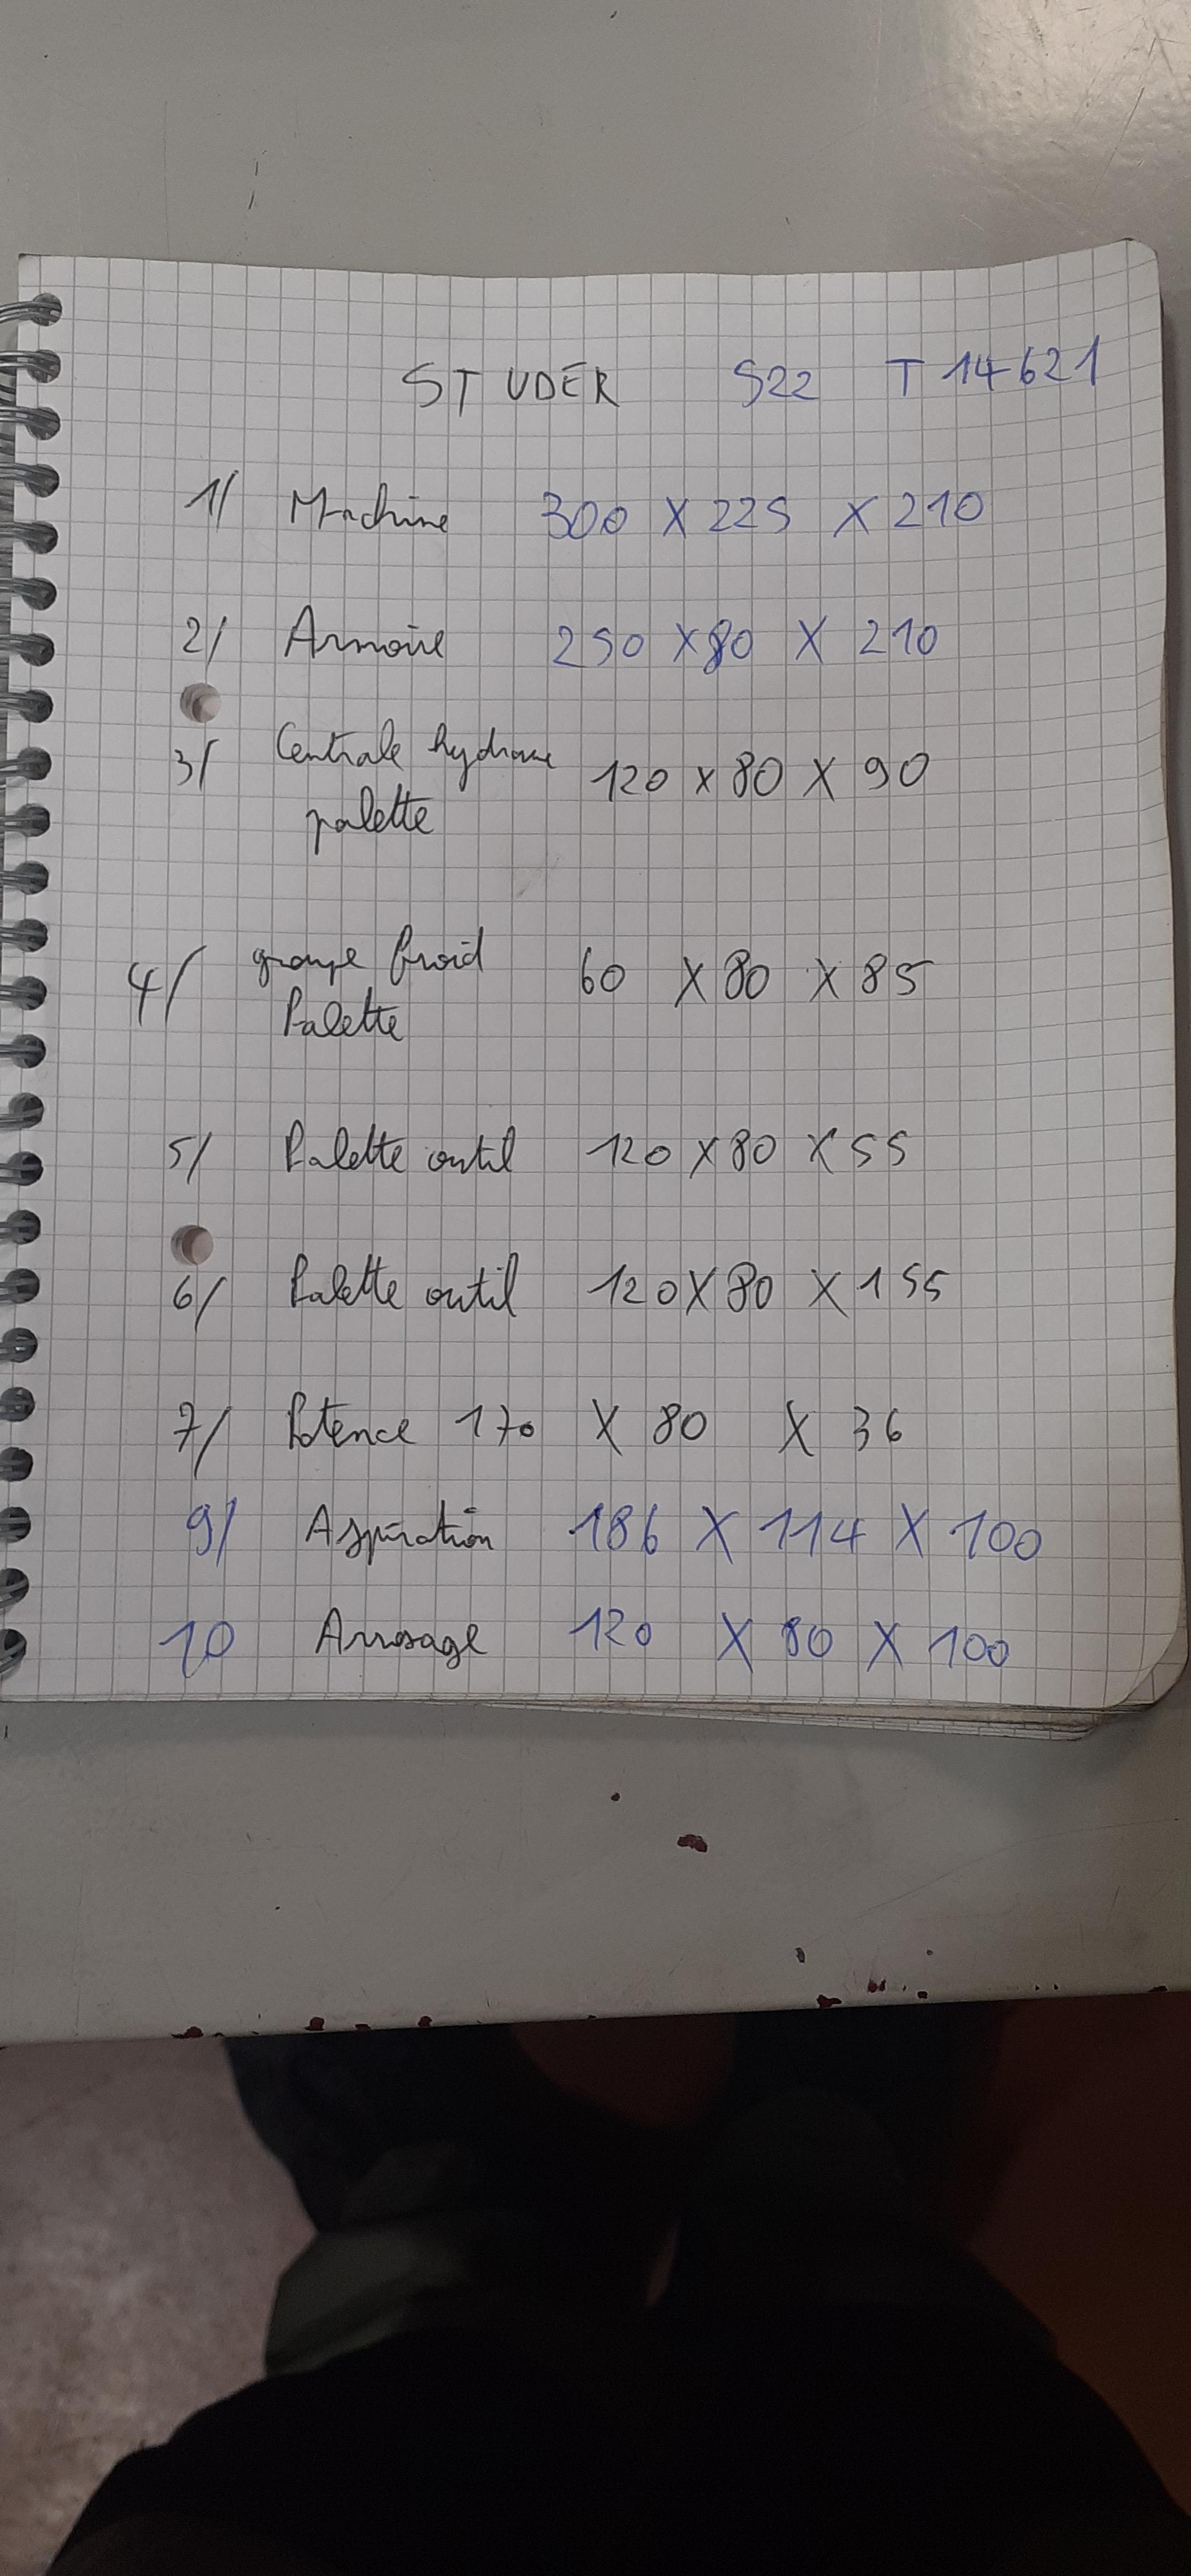 STUDER S22 T14621
1/ Machine 300 X 225 X 210
2/ Armoire 250 X 80 X 210
3/ Centrale hydrau 120 x 80 X 90
palette
4/ groupe froid 60 X 80 X 85
Palette
5/ Palette outil 120 X 80 X 55
6/ Palette outil 120 X 80 X 155
7/ Potence 170 X 80 X 36
9/ Aspiration 186 X 114 X 100
10 Arrosage 120 X 80 X 100